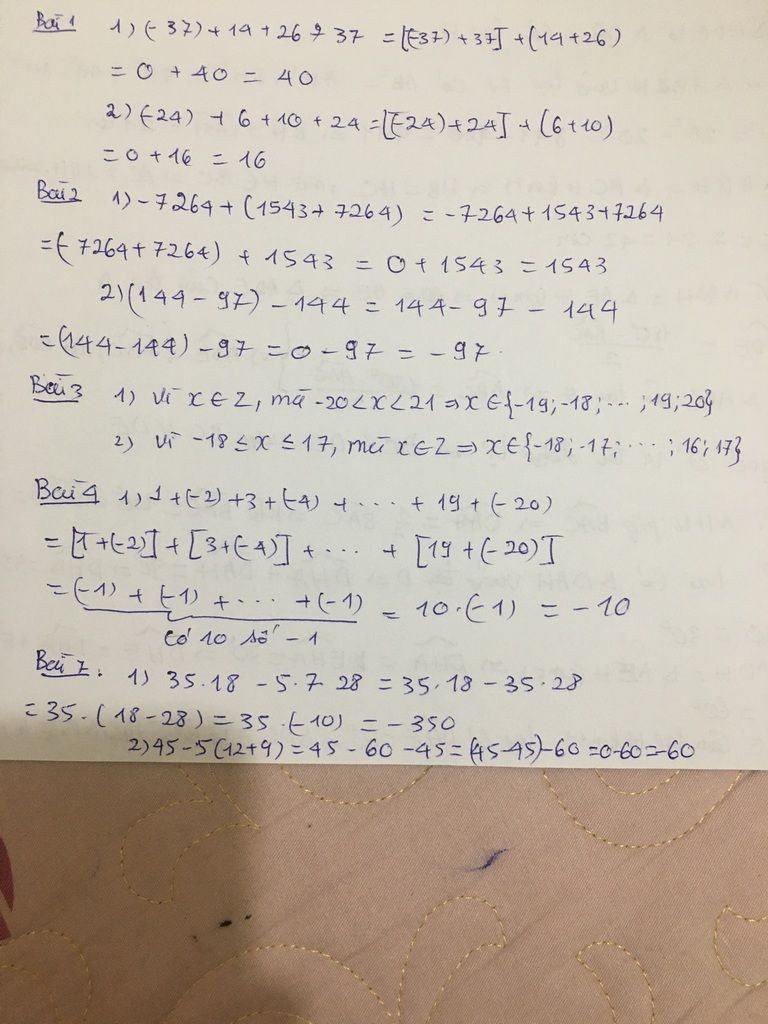 Bài 1 1) (-37) + 14 + 26 + 37 = [(-37) + 37] + (14+26)
= 0 + 40 = 40
2) (-24) + 6 + 10 + 24 = [(-24) + 24] + (6+10)
= 0 + 16 = 16
Bài 2 1) -7264 + (1543 + 7264) = -7264 + 1543 + 7264
= (-7264 + 7264) + 1543 = 0 + 1543 = 1543
2) (144 - 97) - 144 = 144 - 97 - 144
= (144 - 144) - 97 = 0 - 97 = -97.
Bài 3 1) vì x ∈ Z, mà -20 < x < 21 ⇒ x ∈ {-19; -18; ...; 19; 20}
2) vì -18 ≤ x ≤ 17, mà x ∈ Z ⇒ x ∈ {-18; -17; ....; 16; 17}
Bài 4 1) 1 + (-2) + 3 + (-4) + ... + 19 + (-20)
= [1 + (-2)] + [3 + (-4)] + ... + [19 + (-20)]
= (-1) + (-1) + ... + (-1) = 10.(-1) = -10
có 10 số -1
Bài 7. 1) 35.18 - 5.7 28 = 35.18 - 35.28
= 35.(18 - 28) = 35.(-10) = -350
2) 45 - 5(12+9) = 45 - 60 - 45 = (45-45) - 60 = 0-60 = -60